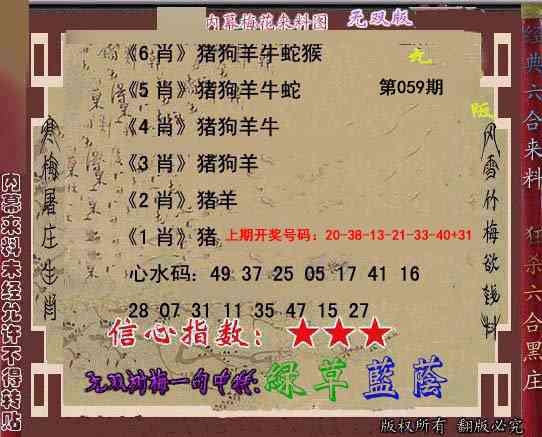 内幕梅花来料图 无双版
《6 肖》猪狗羊牛蛇猴
《5 肖》猪狗羊牛蛇
第059期
《4 肖》猪狗羊牛
《3 肖》猪狗羊
《2 肖》猪羊
《1 肖》猪
上期开奖号码：20-38-13-21-33-40+31
心水码：49 37 25 05 17 41 16
28 07 31 11 35 47 15 27
信心指数：★★★
绿草蓝荫
版权所有 翻版必究
寒梅屠庄生肖
风雪竹梅欲钱料
内幕来料未经允许不得转贴
经典六合来料
狂杀六合黑庄